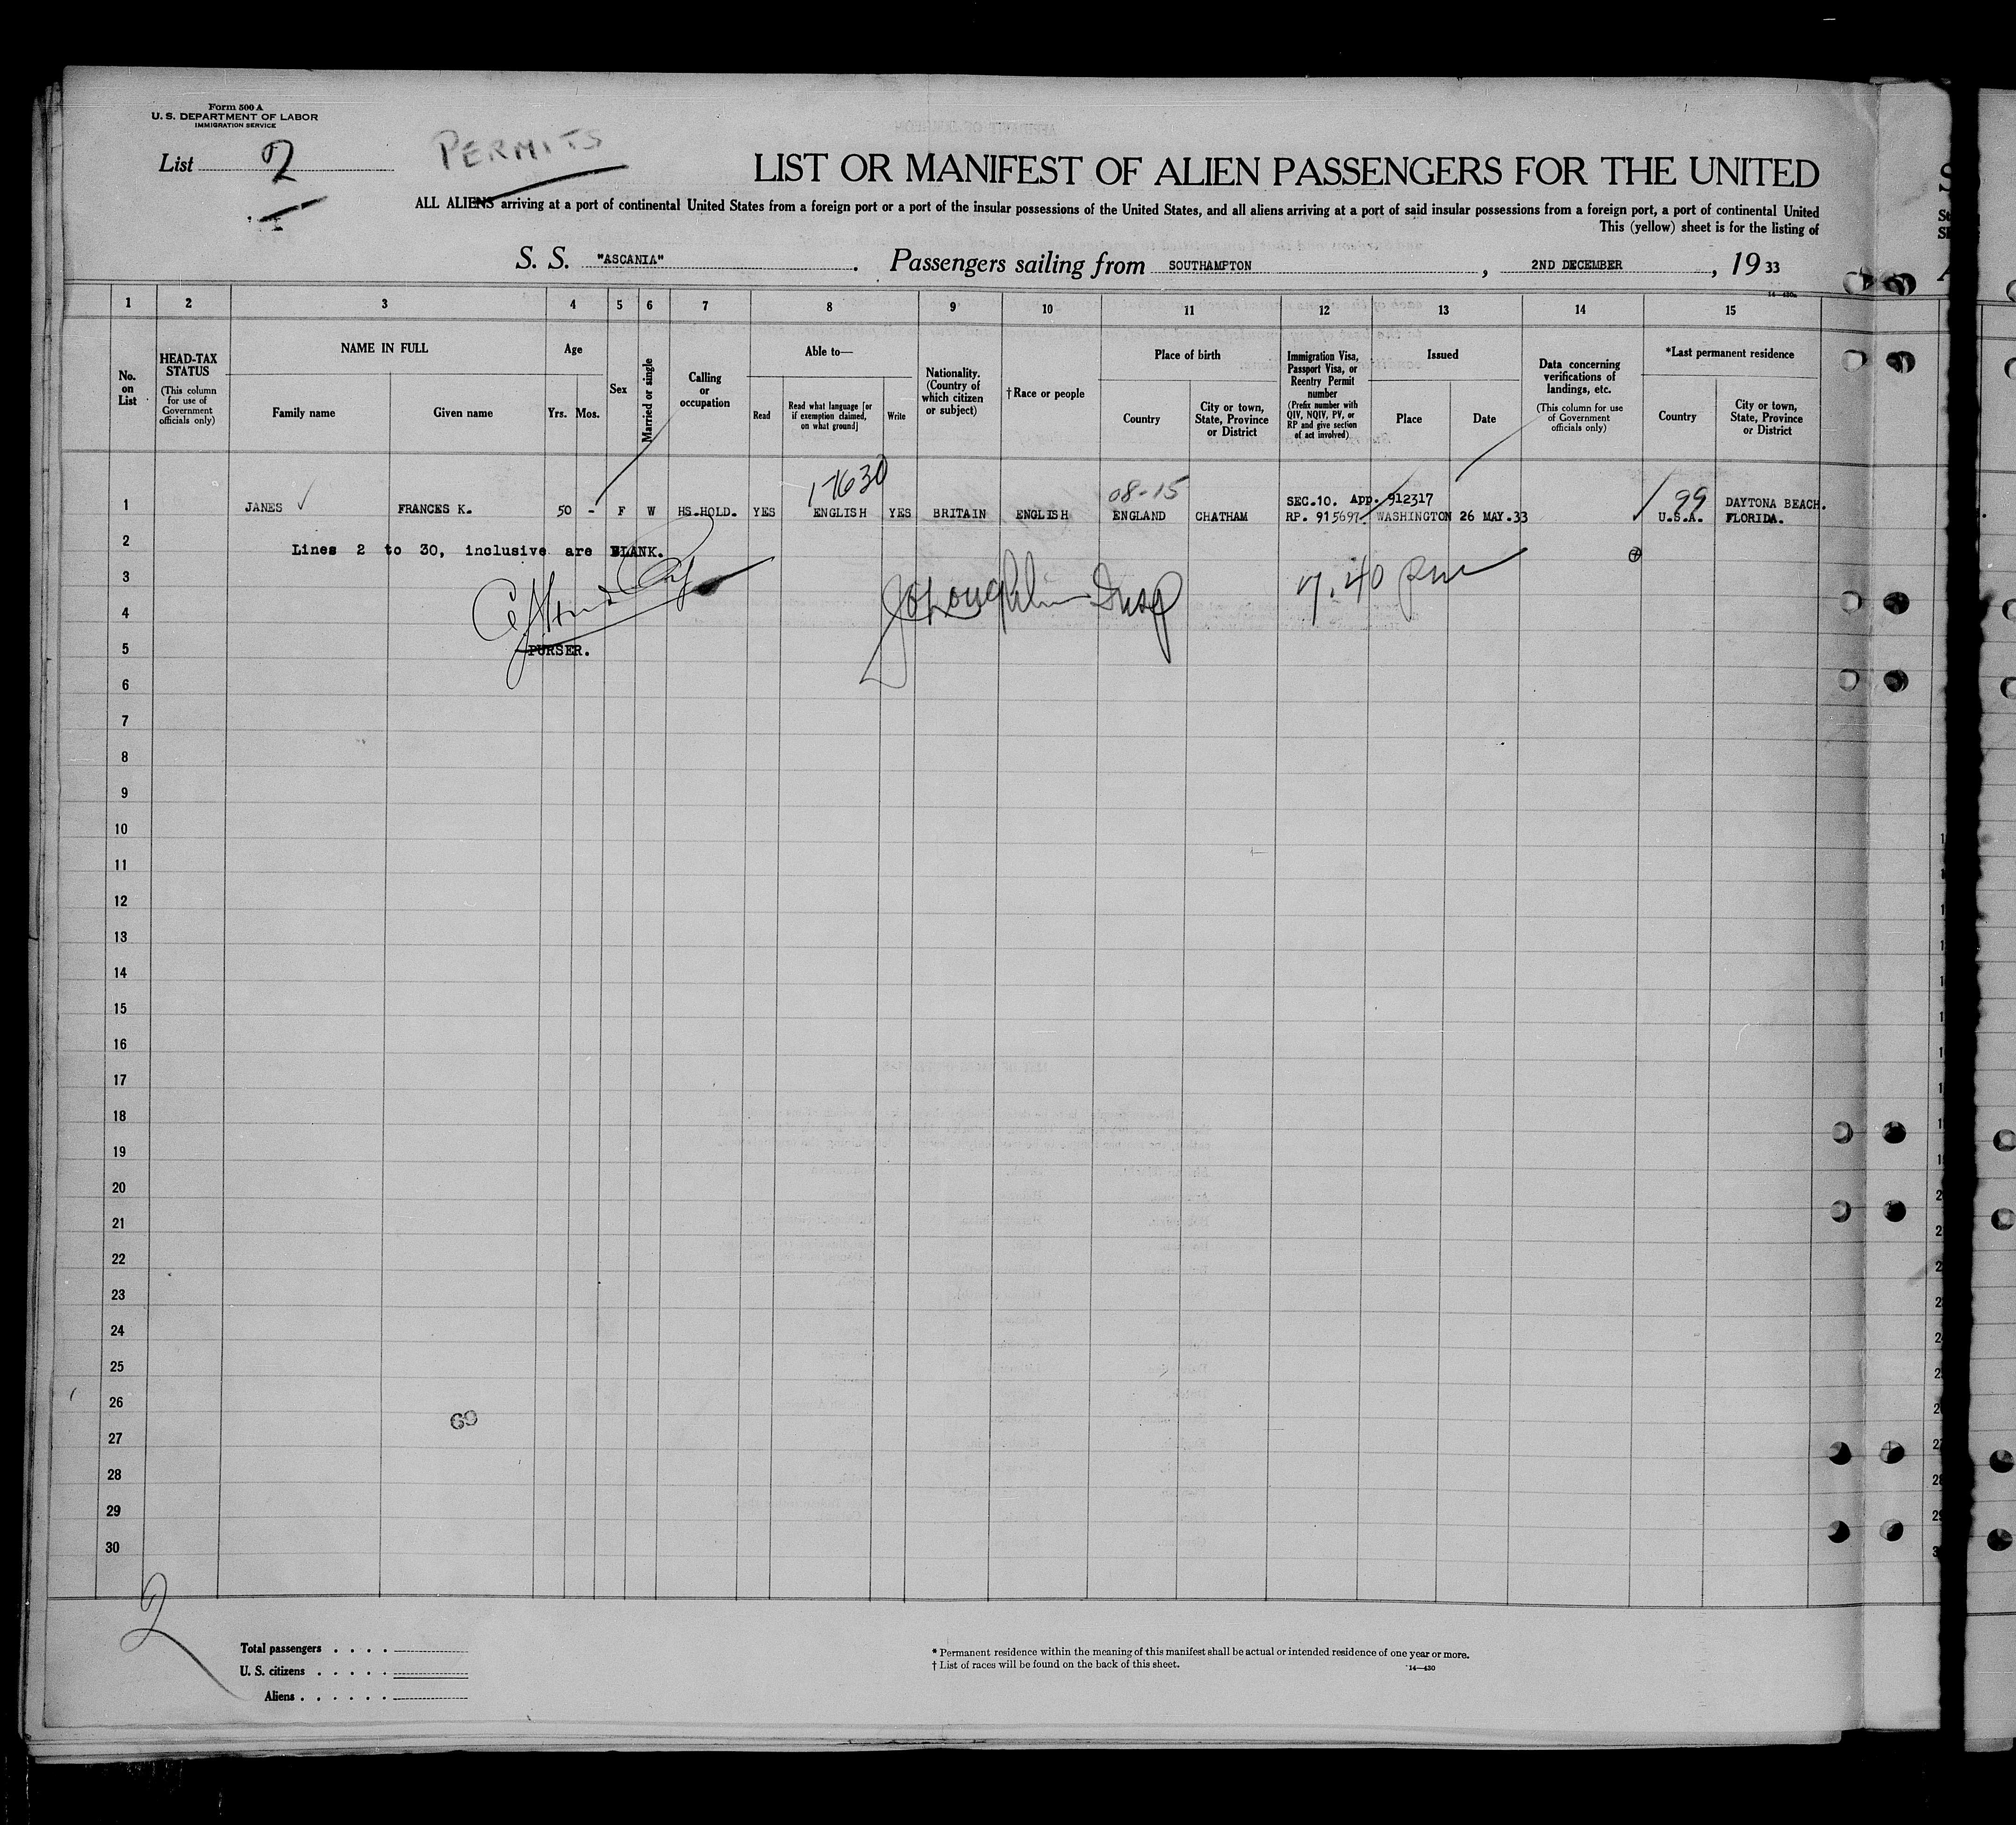 Form 500 A
U. S. DEPARTMENT OF LABOR
IMMIGRATION SERVICE
List 2
PERMITS
LIST OR MANIFEST OF ALIEN PASSENGERS FOR THE UNITED
ALL ALIENS arriving at a port of continental United States from a foreign port or a port of the insular possessions of the United States, and all aliens arriving at a port of said insular possessions from a foreign port, a port of continental United
This (yellow) sheet is for the listing of
S. S. "ASCANIA". Passengers sailing from SOUTHAMPTON, 2ND DECEMBER, 19 33
1 2 3 4 5 6 7 8 9 10 11 12 13 14 15
No. on List
HEAD-TAX STATUS
(This column for use of Government officials only)
NAME IN FULL
Family name
Given name
Age
Yrs. Mos.
Sex
Married or single
Calling or occupation
Able to—
Read
Read what language [or if exemption claimed, on what ground]
Write
Nationality. (Country of which citizen or subject)
† Race or people
Place of birth
Country
City or town, State, Province or District
Immigration Visa, Passport Visa, or Reentry Permit number
(Prefix number with QIV, NQIV, PV, or RP and give section of act involved)
Issued
Place
Date
Data concerning verifications of landings, etc.
(This column for use of Government officials only)
*Last permanent residence
Country
City or town, State, Province or District
17630
08-15
SEC.10. App. 912317
99
DAYTONA BEACH.
1 JANES FRANCES K. 50 - F W HS.HOLD. YES ENGLISH YES BRITAIN ENGLISH ENGLAND CHATHAM RP. 915697 WASHINGTON 26 MAY.33 U.S.A. FLORIDA.
2 Lines 2 to 30, inclusive are BLANK.
3
7.40 pm
4
5 PURSER.
6
7
8
9
10
11
12
13
14
15
16
17
18
19
20
21
22
23
24
25
26
69
27
28
29
30
2
Total passengers . . . .
U. S. citizens . . . . .
Aliens . . . . . .
* Permanent residence within the meaning of this manifest shall be actual or intended residence of one year or more.
† List of races will be found on the back of this sheet.
14—430